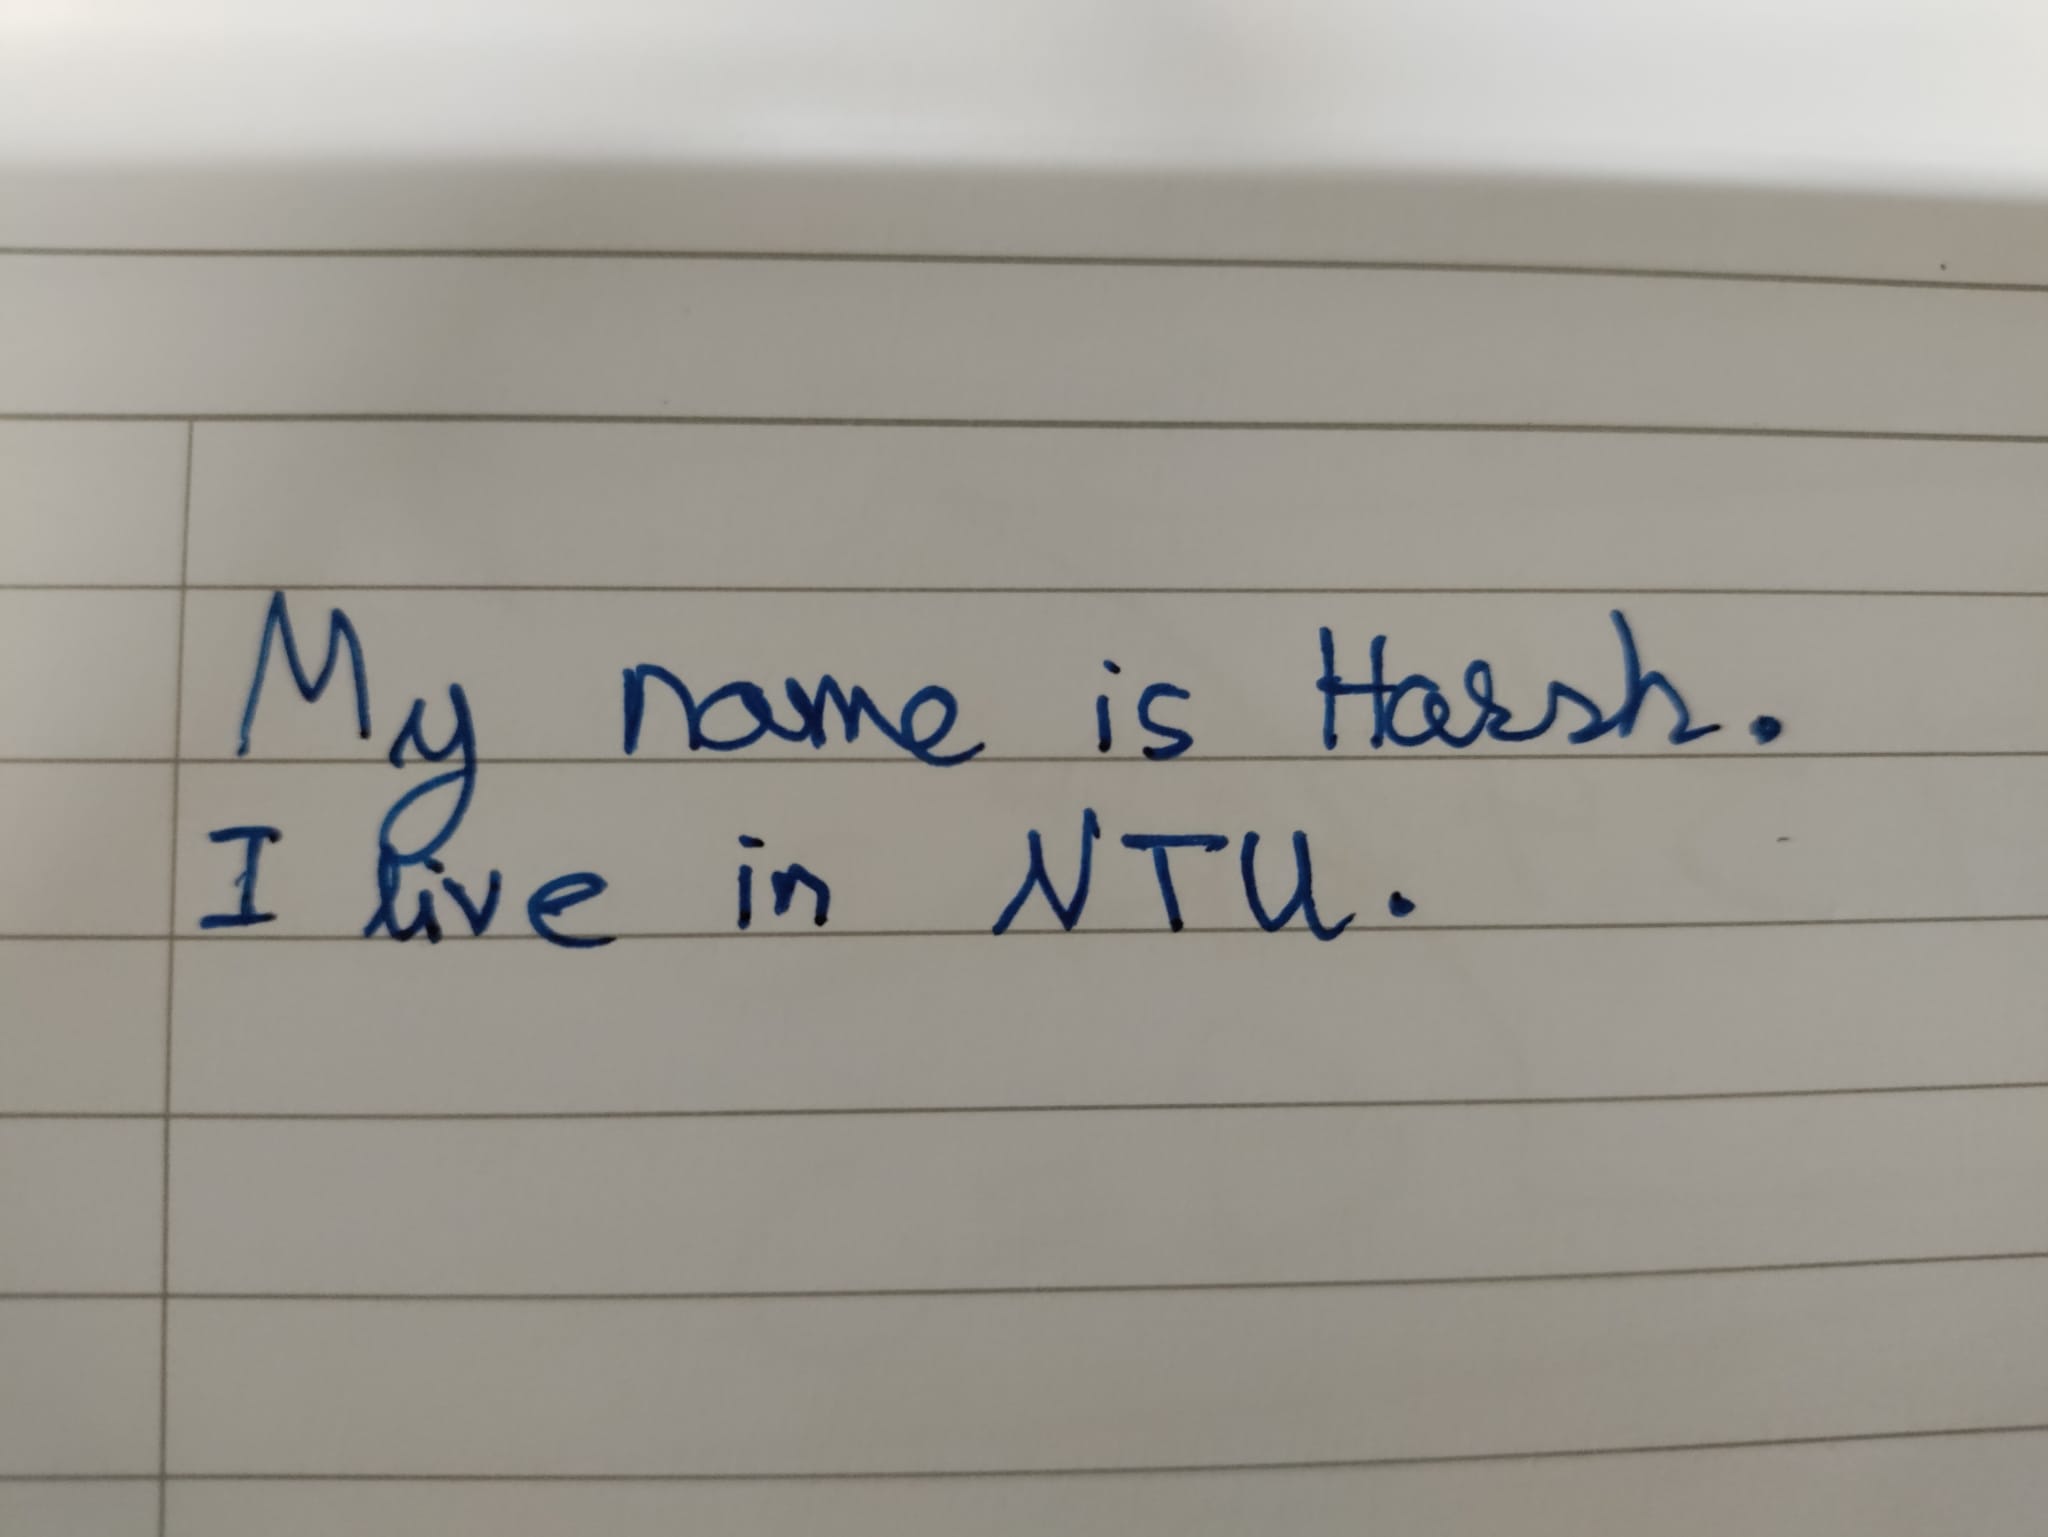 My name is Harsh.
I live in NTU.